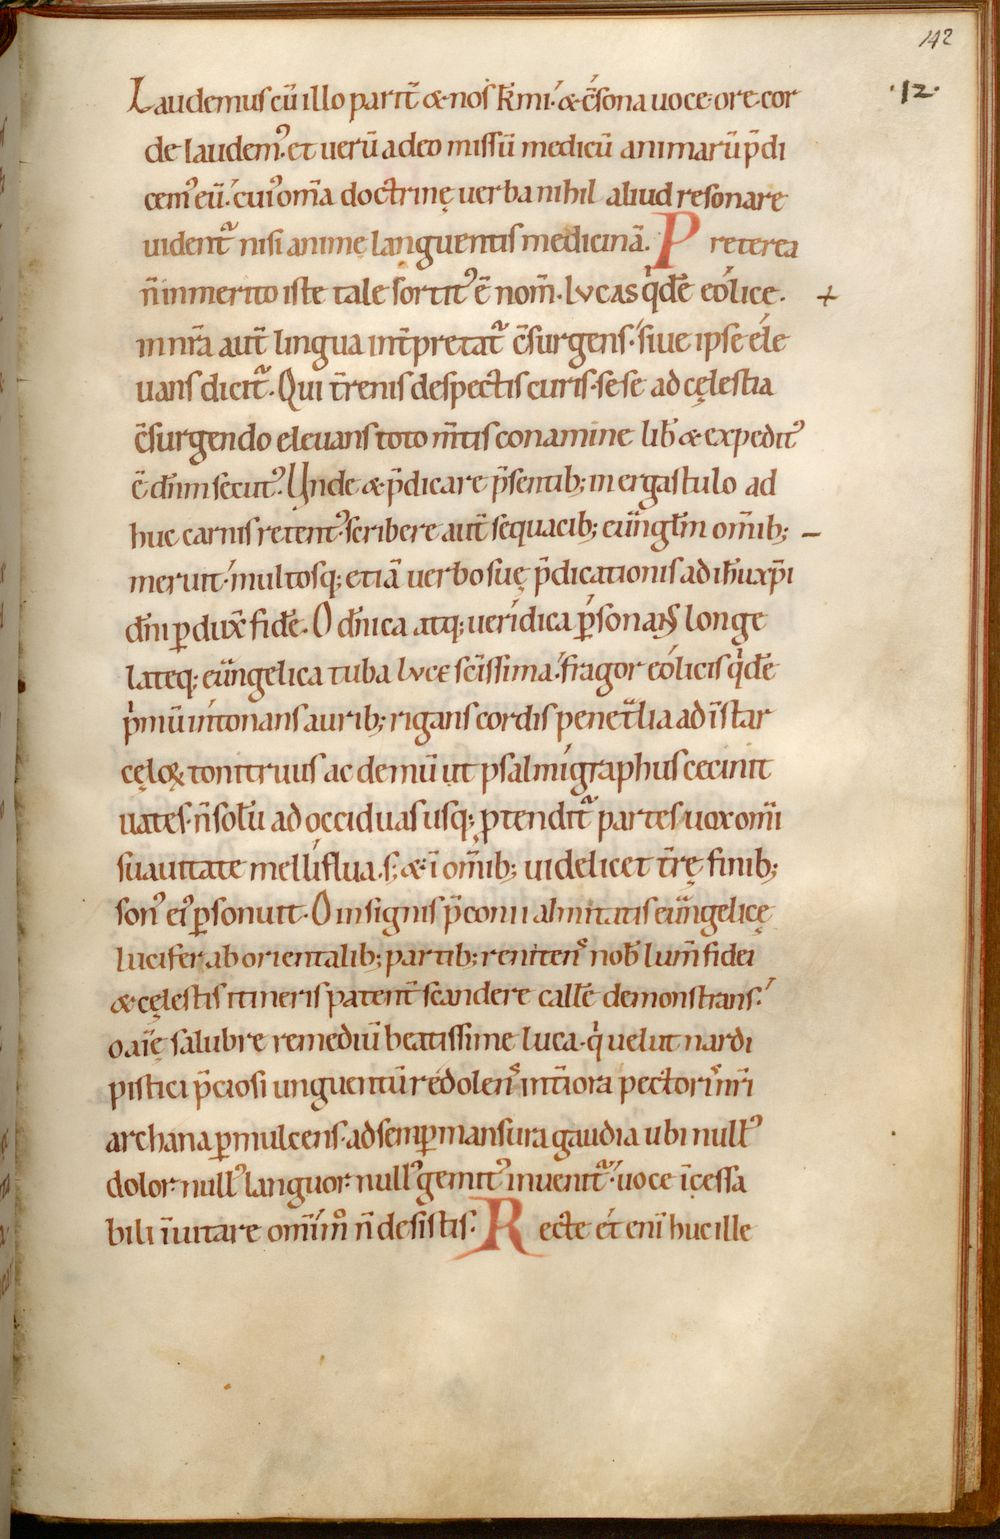 142
·12·
Laudemus cū illo parit̄ & nos k̄mi·́ & c̄sona uoce· ore· cor
de laudem᾽· et uerū a deo missū medicū animarū p̄di
cem᾽ eū·́ cui᾽ om̄a doctrinę uerba nihil aliud resonare
uident᷑ nisi animę languentis medicinā· Preterea
n̄ inmerito iste tale sortit᾽ ē nom̄· lvcas qͥdē eólice· +
in nr̄a aut̄ lingua int̄pretat᷑ c̄surgens·́ siue ipse éle
uans dicit᷑· Qui t̄renis despectis curis· sese ad cęlestia
c̄surgendo eleuans toto m̄tis conamine lib̄ & expedit᾽
ē dn̄m secut᾽· Unde & p̄dicare p̄sentib; in ergastulo ad
huc carnis retent᾽· scribere aut̄ sequacib; eūngl̄m om̄ib; –
meruit·́ multosq; etiā uerbo suę p̄dicationis ad ih̄u xp̄i
dn̄i ꝑdux̄ fidē· O dn̄ica atq; ueridica ꝑsonans longe
lateq; eūngelica tuba lvce sc̄issima·́ fragor eólicis qͥdē
pͥmū intonans aurib; rigans cordis penet̄lia ad īstar
cęloꝝ tonitruus ac demū ut psalmigraphus cecinit
uates· n̄ solū ad occiduas usq; ꝓtendit᷑ partes uox om̄i
suauitate melliflua· s; & ī om̄ib; uidelicet t̄rę finib;
son᾽ ei᾽ ꝑsonuit· O insignis p̄conii almitatis eūngelicę
lucifer ab orientalib; partib; renitens nob̄ lum̄ fidei
& cęlestis itineris patent̄ scandere callē demonstrans·́
o aīę salubre remediū beatissime luca· qͥ uelut nardi
pistici p̄ciosi unguentū redolens int̄iora pectoris nr̄i
archana ꝑmulcens· ad semꝑ mansura gaudia ubi null᾽
dolor· null᾽ languor· null᾽ gemit᾽ inuenit᷑·́ uoce īcessa
bili īuitare om̄imͦ n̄ desistis· Recte et enī huc ille